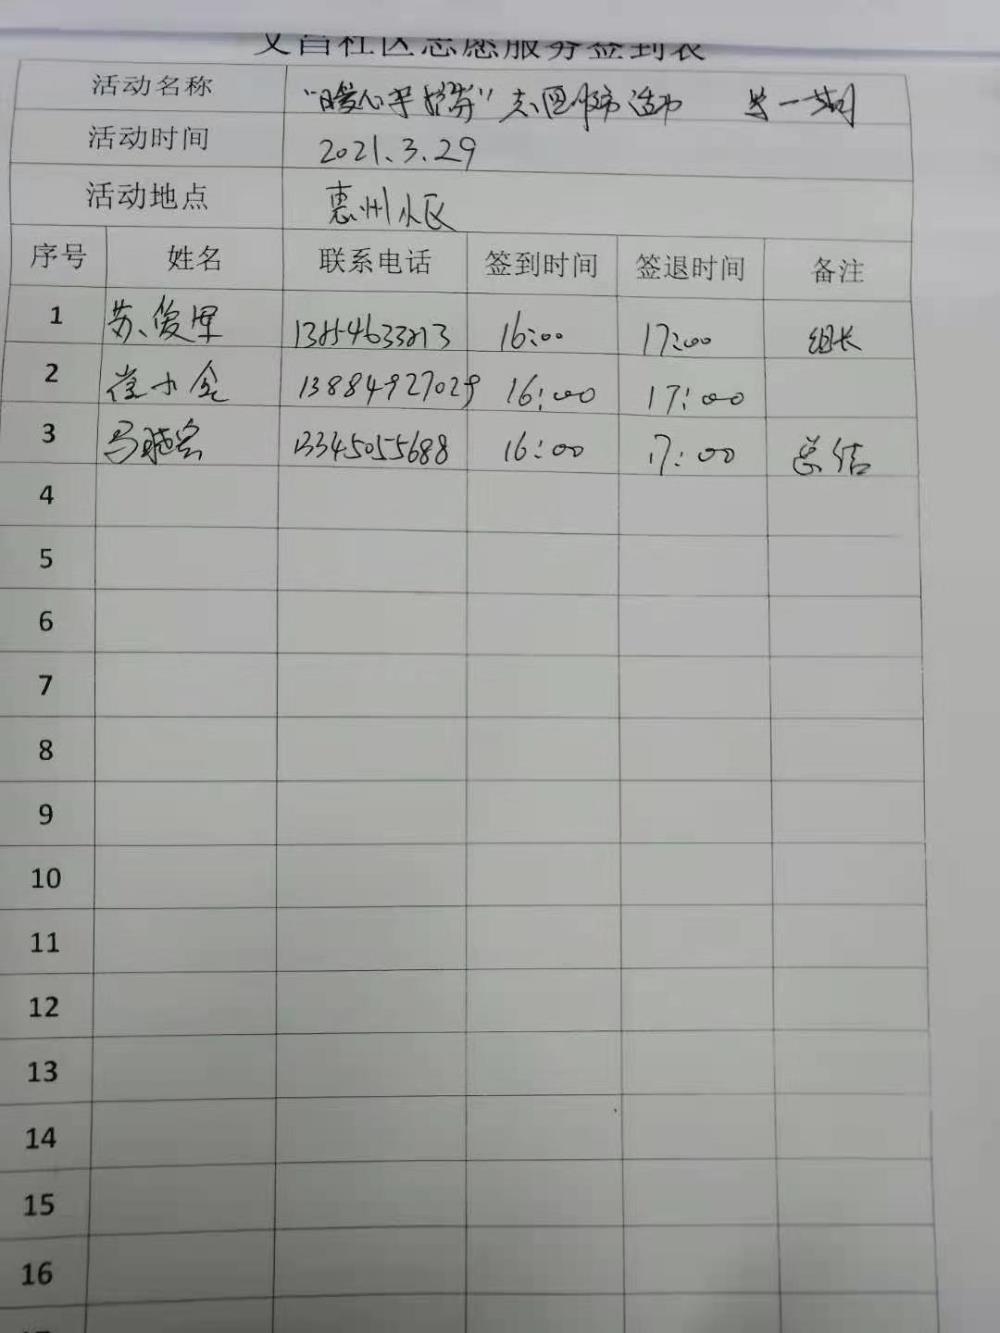 文昌社区志愿服务签到表
活动名称 "暖心手拉手" 志愿服务活动 第一期
活动时间 2021.3.29
活动地点 惠州小区
序号 姓名 联系电话 签到时间 签退时间 备注
1 苏俊 16:00 17:00 组长
2 崔小 13884927029 16:00 17:00
3 马晓 13345055688 16:00 17:00 总结
4
5
6
7
8
9
10
11
12
13
14
15
16